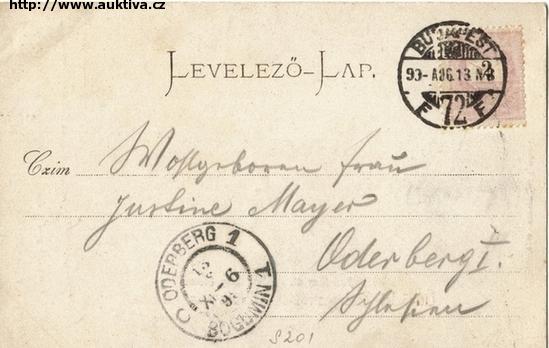 http://www.auktiva.cz
LEVELEZŐ-LAP.
BUDAPEST
72
F F
Czim Wohlgeboren Frau
Justine Mayer
Oderberg I.
Schlesien
ODERBERG 1
S201